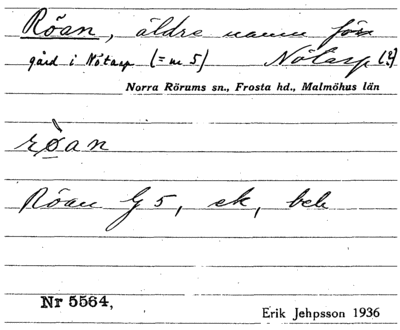 Röan, äldre namn för
gård i Nötarp (= nr 5) Nötarp (?)
Norra Rörums sn., Frosta hd., Malmöhus län
ròan
Röan G 5, ek, beb
Nr 5564,
Erik Jehpsson 1936